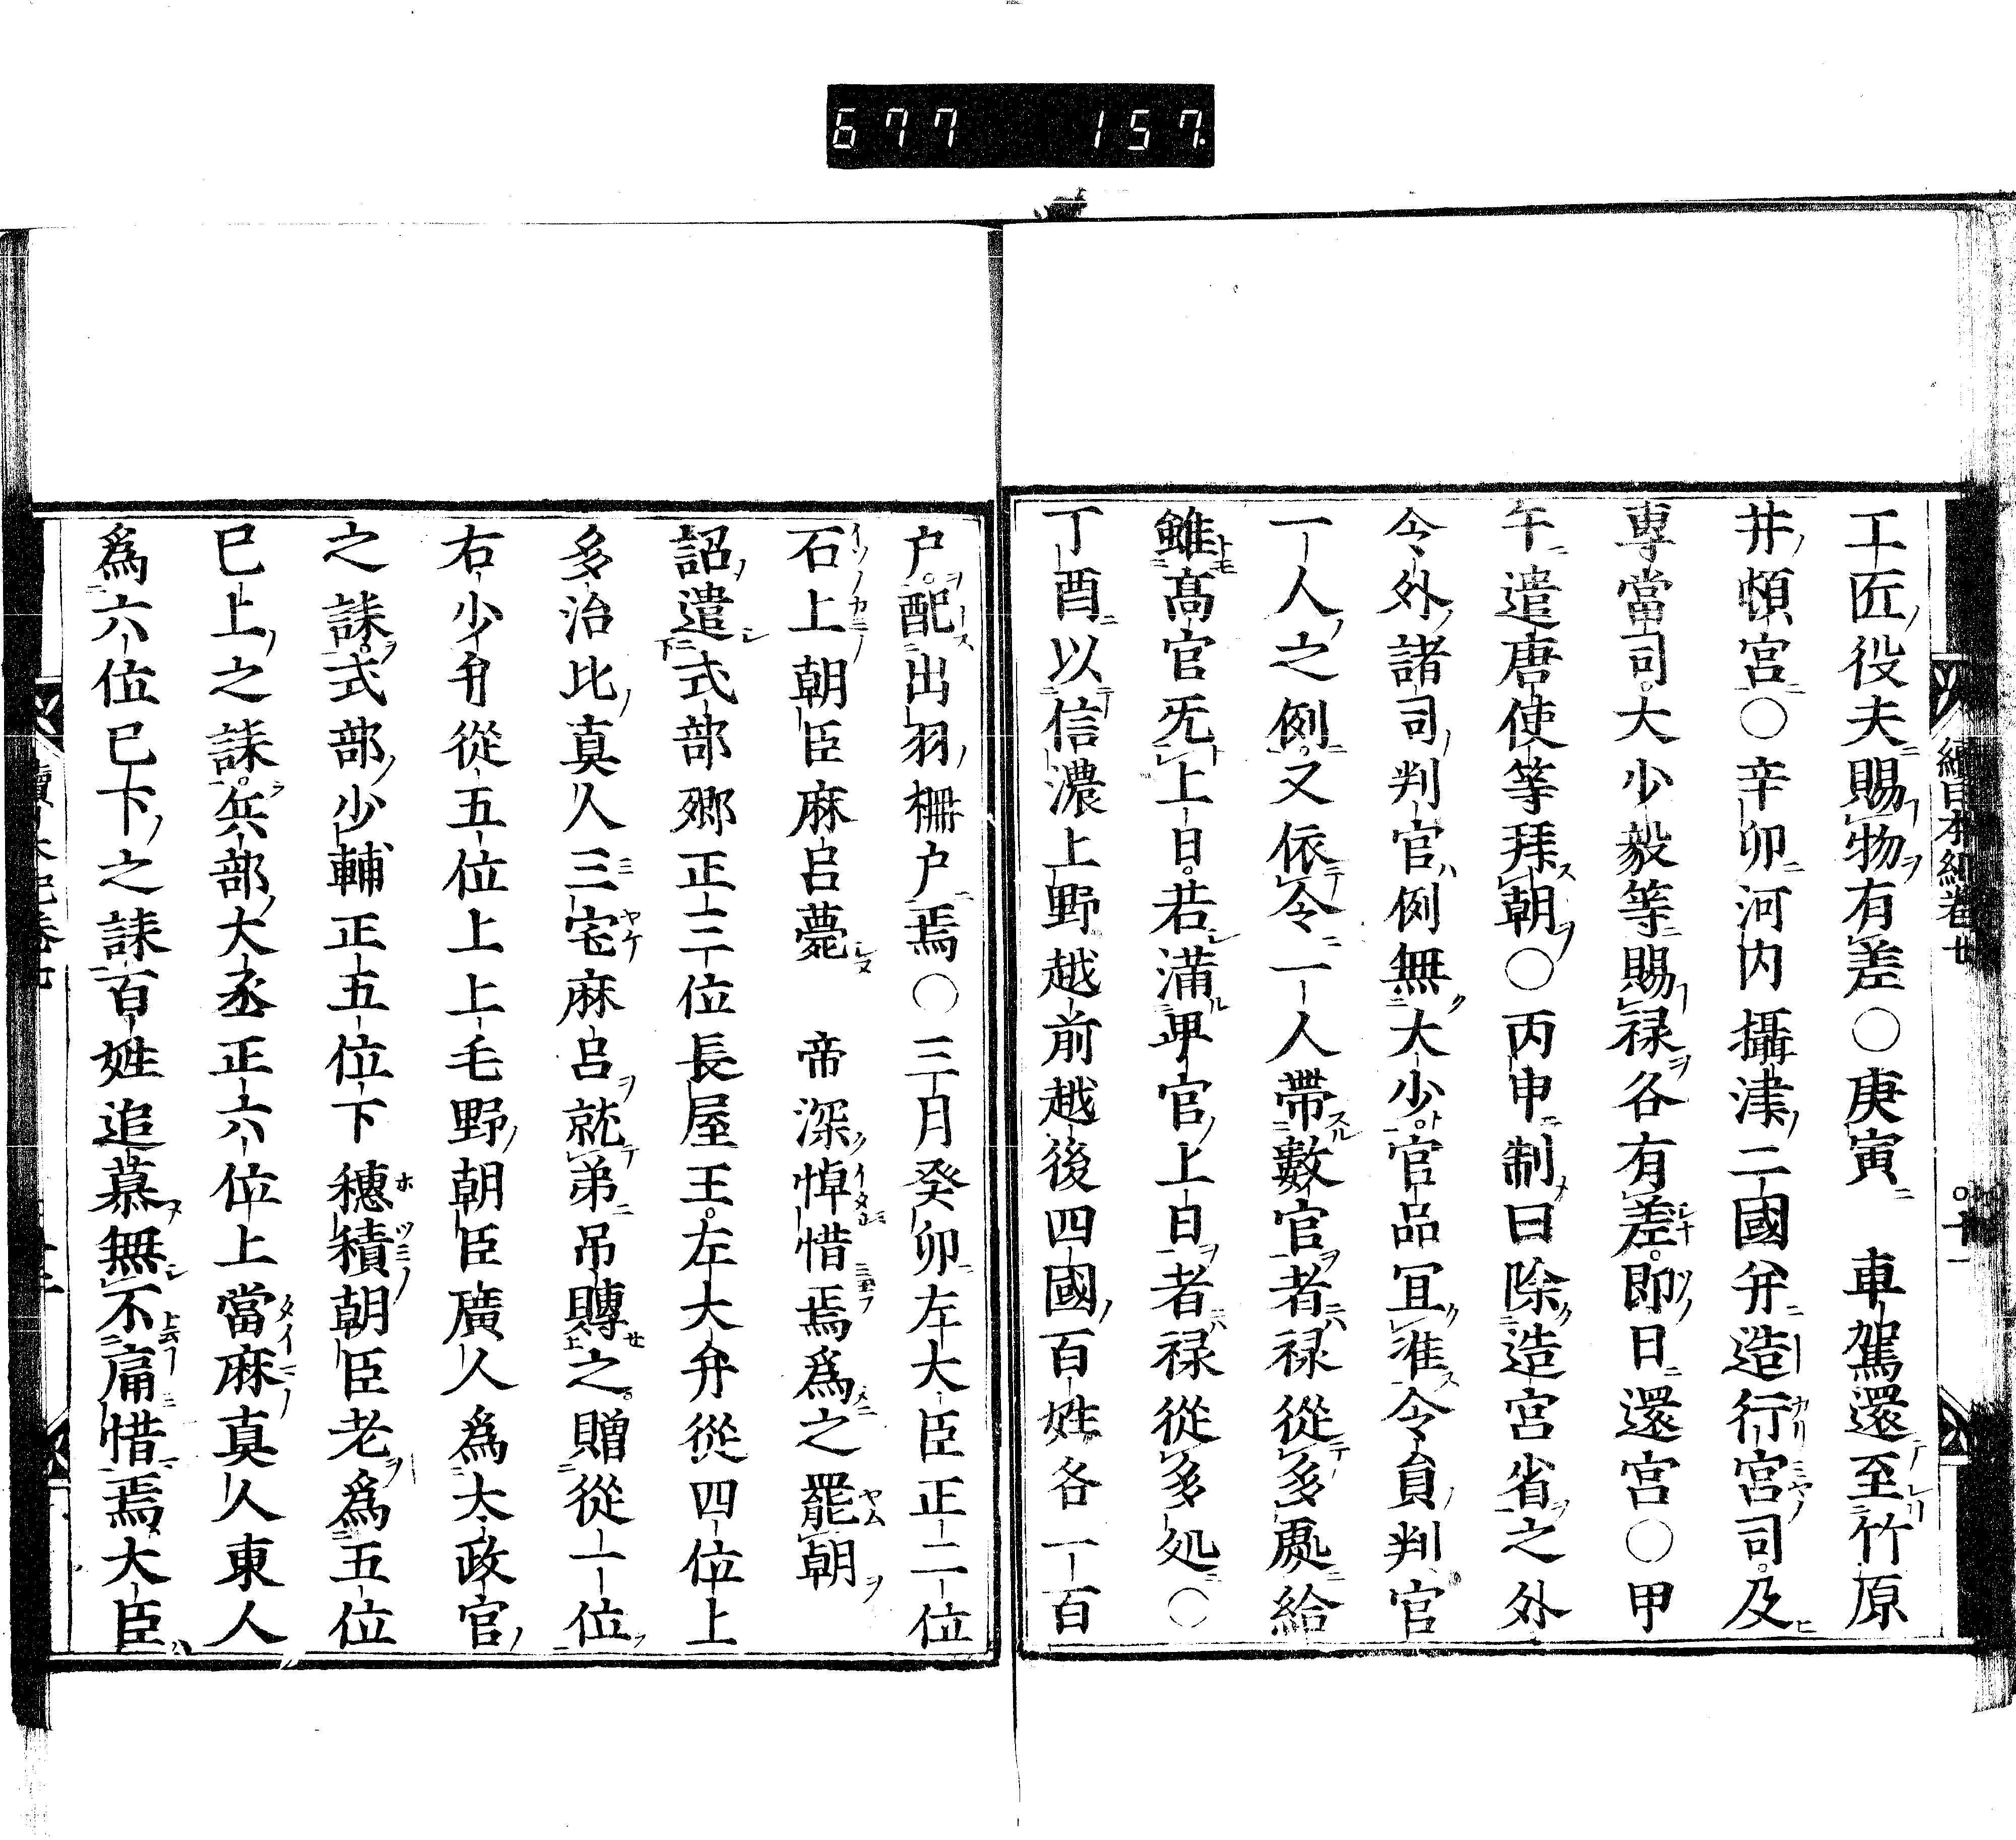 677 157.
工匠役夫賜物有差○庚寅 車駕還至竹原
井頓宮○辛卯河内攝津二國弁造行宮司及
專當司大少毅等賜禄各有差即日還宮○甲
午遣唐使等拜朝○丙申制曰除造宮省之外
令外諸司判官例無大少官品冝准令負判官
一人之例又依令一人帶數官者禄從多處給
雖髙官旡上日若滿卑官上日者禄從多処○
丁酉以信濃上野越前越後四國百姓各一百
戸配出羽柵戸焉○三月癸卯左大臣正二位
石上朝臣麻呂薨 帝深悼惜焉爲之罷朝
詔遣式部卿正三位長屋王左大弁從四位上
多治比真人三宅麻呂就弟吊賻之贈從一位
右少弁從五位上上毛野朝臣廣人爲太政官
之誄式部少輔正五位下穗積朝臣老爲五位
已上之誄兵部大丞正六位上當麻真人東人
爲六位已下之誄百姓追慕無不痛惜焉大臣